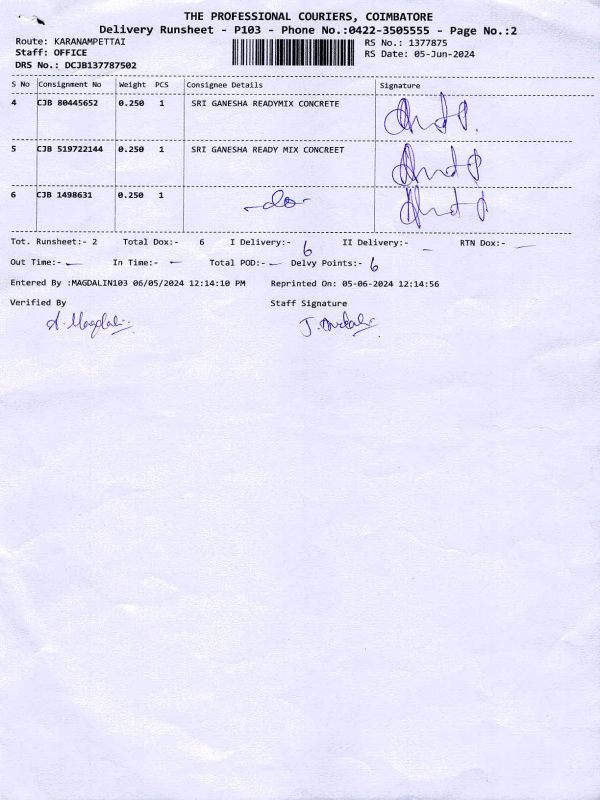 THE PROFESSIONAL COURIERS, COIMBATORE
Delivery Runsheet - P103 - Phone No.:0422-3505555 - Page No.:2
Route: KARANAMPETTAI RS No.: 1377875
Staff: OFFICE RS Date: 05-Jun-2024
DRS No.: DCJB137787502
S No Consignment No Weight PCS Consignee Details Signature
4 CJB 80445652 0.250 1 SRI GANESHA READYMIX CONCRETE
5 CJB 519722144 0.250 1 SRI GANESHA READY MIX CONCREET
6 CJB 1498631 0.250 1 -do-
Tot. Runsheet:- 2 Total Dox:- 6 I Delivery:- 6 II Delivery:- - RTN Dox:- -
Out Time:- - In Time:- - Total POD:- - Delvy Points:- 6
Entered By :MAGDALIN103 06/05/2024 12:14:10 PM Reprinted On: 05-06-2024 12:14:56
Verified By Staff Signature
A. Magdalin